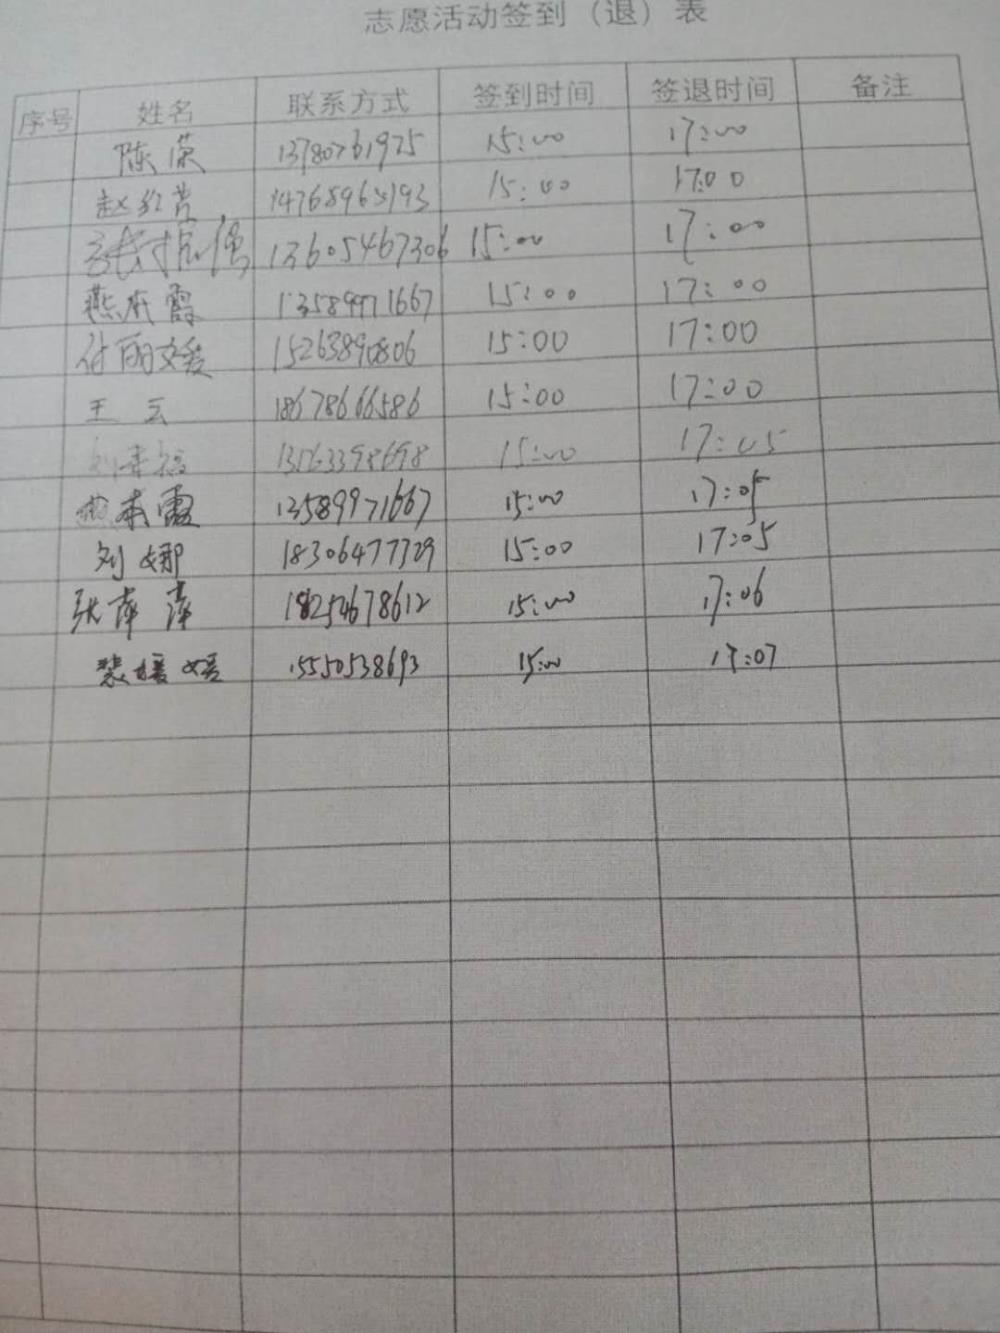 志愿活动签到（退）表
序号 姓名 联系方式 签到时间 签退时间 备注
陈荣 13780761975 15:00 17:00
赵红 15:00 17:00
13605467306 15:00 17:00
燕东霞 13589971667 15:00 17:00
付丽媛 15263890806 15:00 17:00
王云 18678666586 15:00 17:00
刘 15:00 17:05
霞 13589971667 15:00 17:05
刘娜 18306477729 15:00 17:05
张萍萍 18254678612 15:00 17:06
裴媛媛 15550538693 15:00 17:07